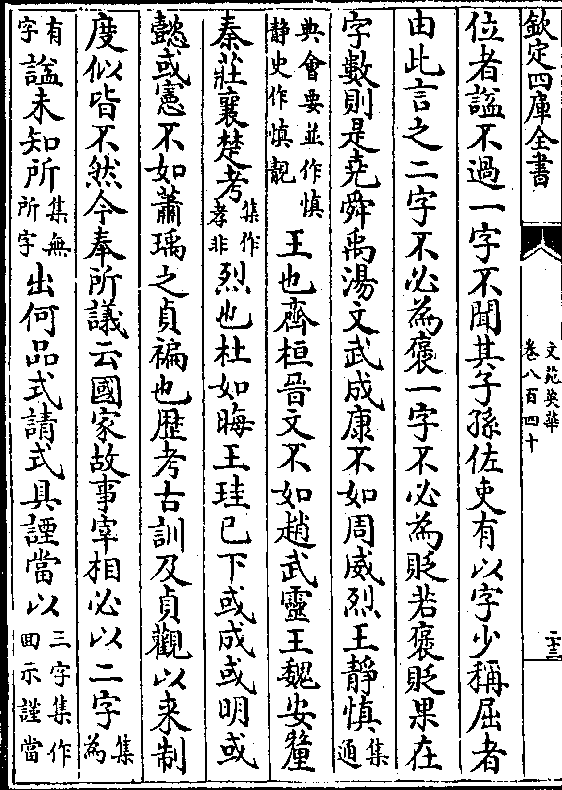 欽定四庫全書
文苑英華
卷八百四十
二十三
位者諡不過一字不聞其子孫佐吏有以字少稱屈者
由此言之二字不必為褒一字不必為貶若褒貶果在
字數則是堯舜禹湯文武成康不如周威烈王靜慎集通
典會要並作慎靜史作慎靚王也齊桓晉文不如趙武靈王魏安釐
秦莊襄楚考集作孝非烈也杜如晦王珪已下或成或明或
懿或憲不如蕭瑀之貞褊也歴考古訓及貞觀以来制
度似皆不然今奉所議云國家故事宰相必以二字集為
有字諡未知所集無所字出何品式請式具謹當以三字集作囬示謹當